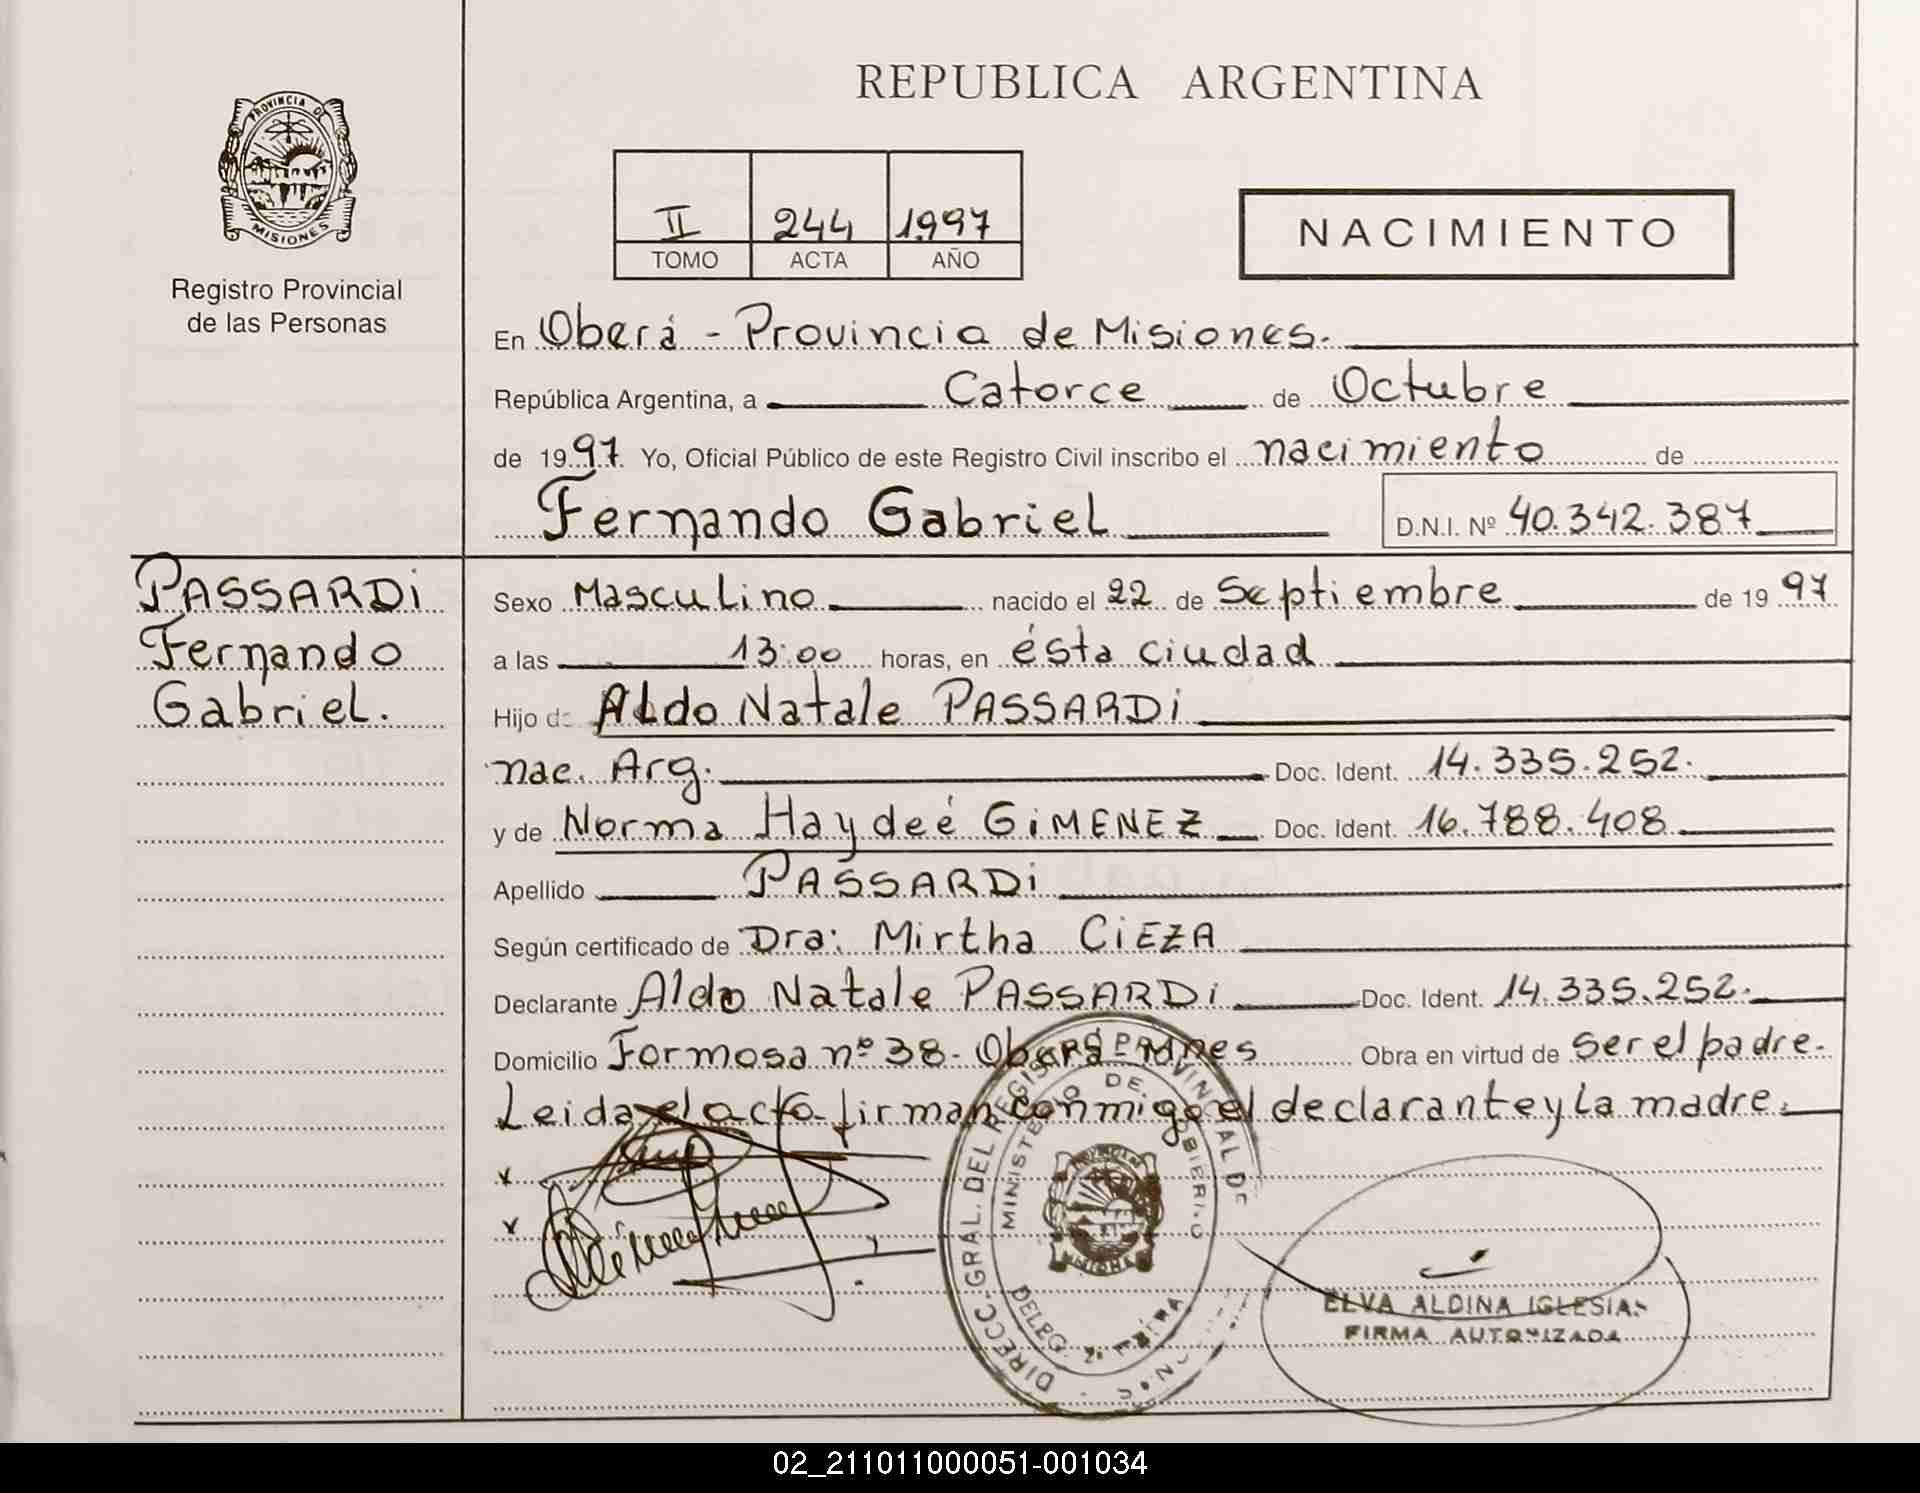 REPUBLICA ARGENTINA
PROVINCIA DE
MISIONES
Registro Provincial
de las Personas
II 244 1997
TOMO ACTA AÑO
NACIMIENTO
En Oberá - Provincia de Misiones.
República Argentina, a Catorce de Octubre
de 1997. Yo, Oficial Público de este Registro Civil inscribo el nacimiento de
Fernando Gabriel D.N.I. Nº 40.342.387
PASSARDi
Fernando
Gabriel.
Sexo Masculino nacido el 22 de Septiembre de 1997
a las 13:00 horas, en ésta ciudad
Hijo de Aldo Natale PASSARDi
nac. Arg. Doc. Ident. 14.335.252.
y de Norma Haydeé GiMENEZ Doc. Ident. 16.788.408
Apellido PASSARDi
Según certificado de Dra: Mirtha CiEZA
Declarante Aldo Natale PASSARDi Doc. Ident. 14.335.252.
Domicilio Formosa nº 38- Oberá- Mnes Obra en virtud de ser el padre.
Leida el acta firman conmigo el declarante y la madre.
x
x
DIRECC. GRAL. DEL REGISTRO PROVINCIAL DE
MINISTERIO DE GOBIERNO
DELEG. 2ª
ELVA ALDINA IGLESIAS
FIRMA AUTORIZADA
02_211011000051-001034